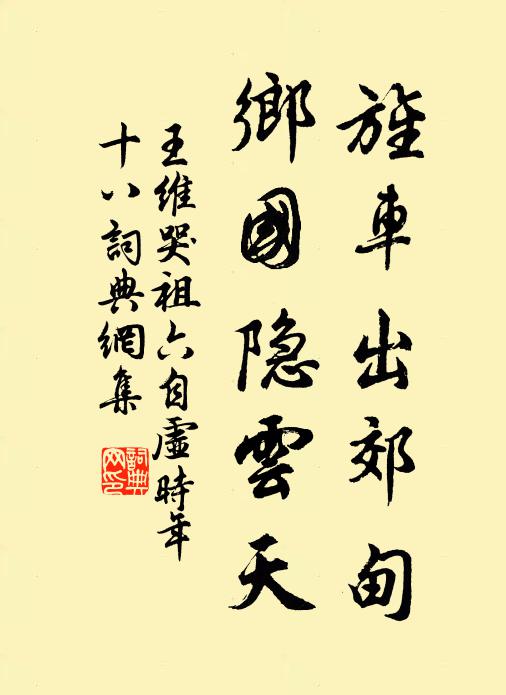 旌車出郊甸
鄉國隐雲天
王維哭祖六自虛時年
十八詞典網集
詞典
网印